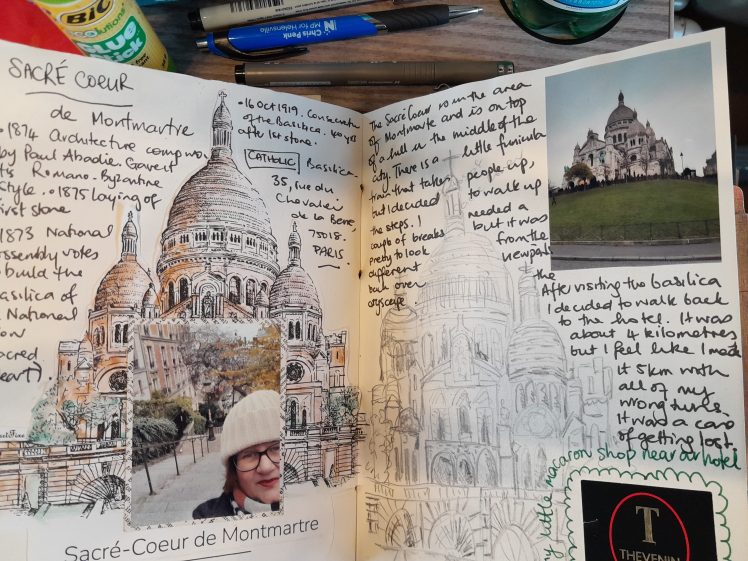 BIC
Glue
Chris Penk
MP for Helensville
SACRÉ COEUR
de Montmartre
• 1874 Architecture
by Paul Abadie.
Romano-Byzantine
style. • 1875 laying of
first stone
1873 National
Assembly votes
build the
Basilica of
National
• 16 Oct 1919.
of the Basilica. 40 yrs
after 1st stone.
CATHOLIC Basilica.
35, rue du
Chevalier
de la Barre,
75018.
PARIS.
Sacré-Coeur de Montmartre
The Sacré Coeur is in the area
of Montmarte and is on top
of a hill in the middle of the
city. There is a little funicular
train that takes people up,
but I decided to walk up
the steps. I needed a
couple of breaks but it was
pretty to look from the
different viewpoints
back over the
cityscape
After visiting the basilica
I decided to walk back
to the hotel. It was
about 4 kilometres
but I feel like I made
it 5km with
all of my
wrong turns.
It was a case
of getting lost.
my little macaron shop near our hotel
T
THEVENIN